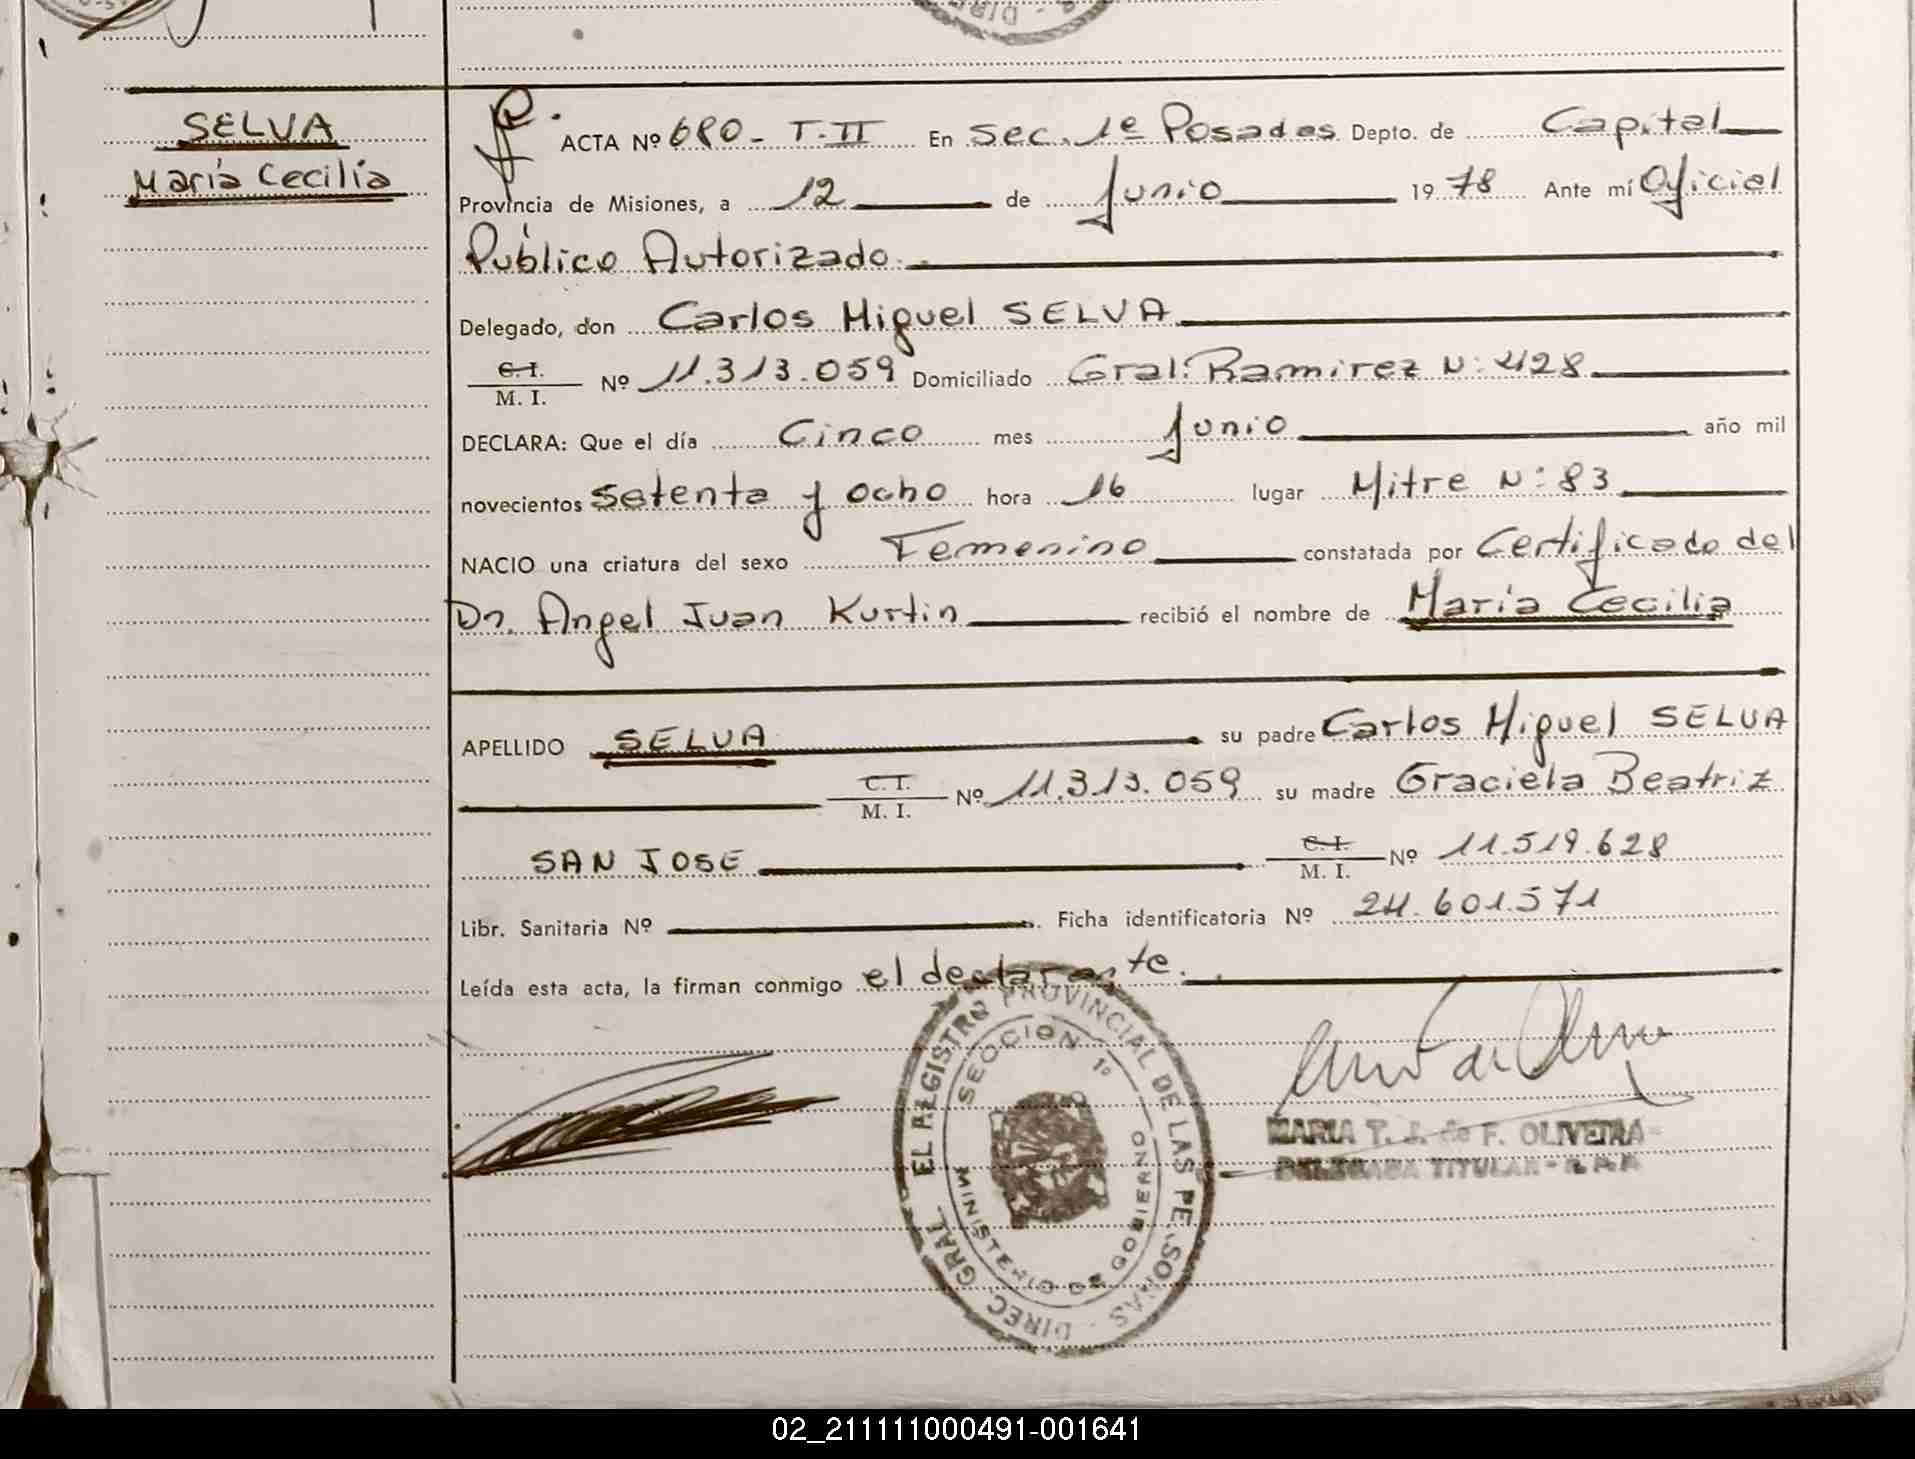 SELVA
María Cecilia
ACTA Nº 680 - T-II En Sec. 1ª Posadas Depto. de Capital
Provincia de Misiones, a 12 de Junio 1978 Ante mí Oficial
Público Autorizado.
Delegado, don Carlos Miguel SELVA
C.I.
M. I. Nº 11.313.059 Domiciliado Gral. Ramirez Nº 428
DECLARA: Que el día Cinco mes Junio año mil
novecientos setenta y ocho hora 16 lugar Mitre Nº 83
NACIO una criatura del sexo Femenino constatada por Certificado del
Dr. Angel Juan Kurtin recibió el nombre de María Cecilia
APELLIDO SELVA su padre Carlos Miguel SELVA
C. I.
M. I. Nº 11.313.059 su madre Graciela Beatriz
SAN JOSE C.I.
M. I. Nº 11.519.628
Libr. Sanitaria Nº Ficha identificatoria Nº 24.601.571
Leída esta acta, la firman conmigo el declarante.
DIREC GRAL EL REGISTRO PROVINCIAL DE LAS PERSONAS
SECCION 1º
MINISTERIO DE GOBIERNO
MARIA T. J. de F. OLIVEIRA
DELEGADA TITULAR -
02_211111000491-001641